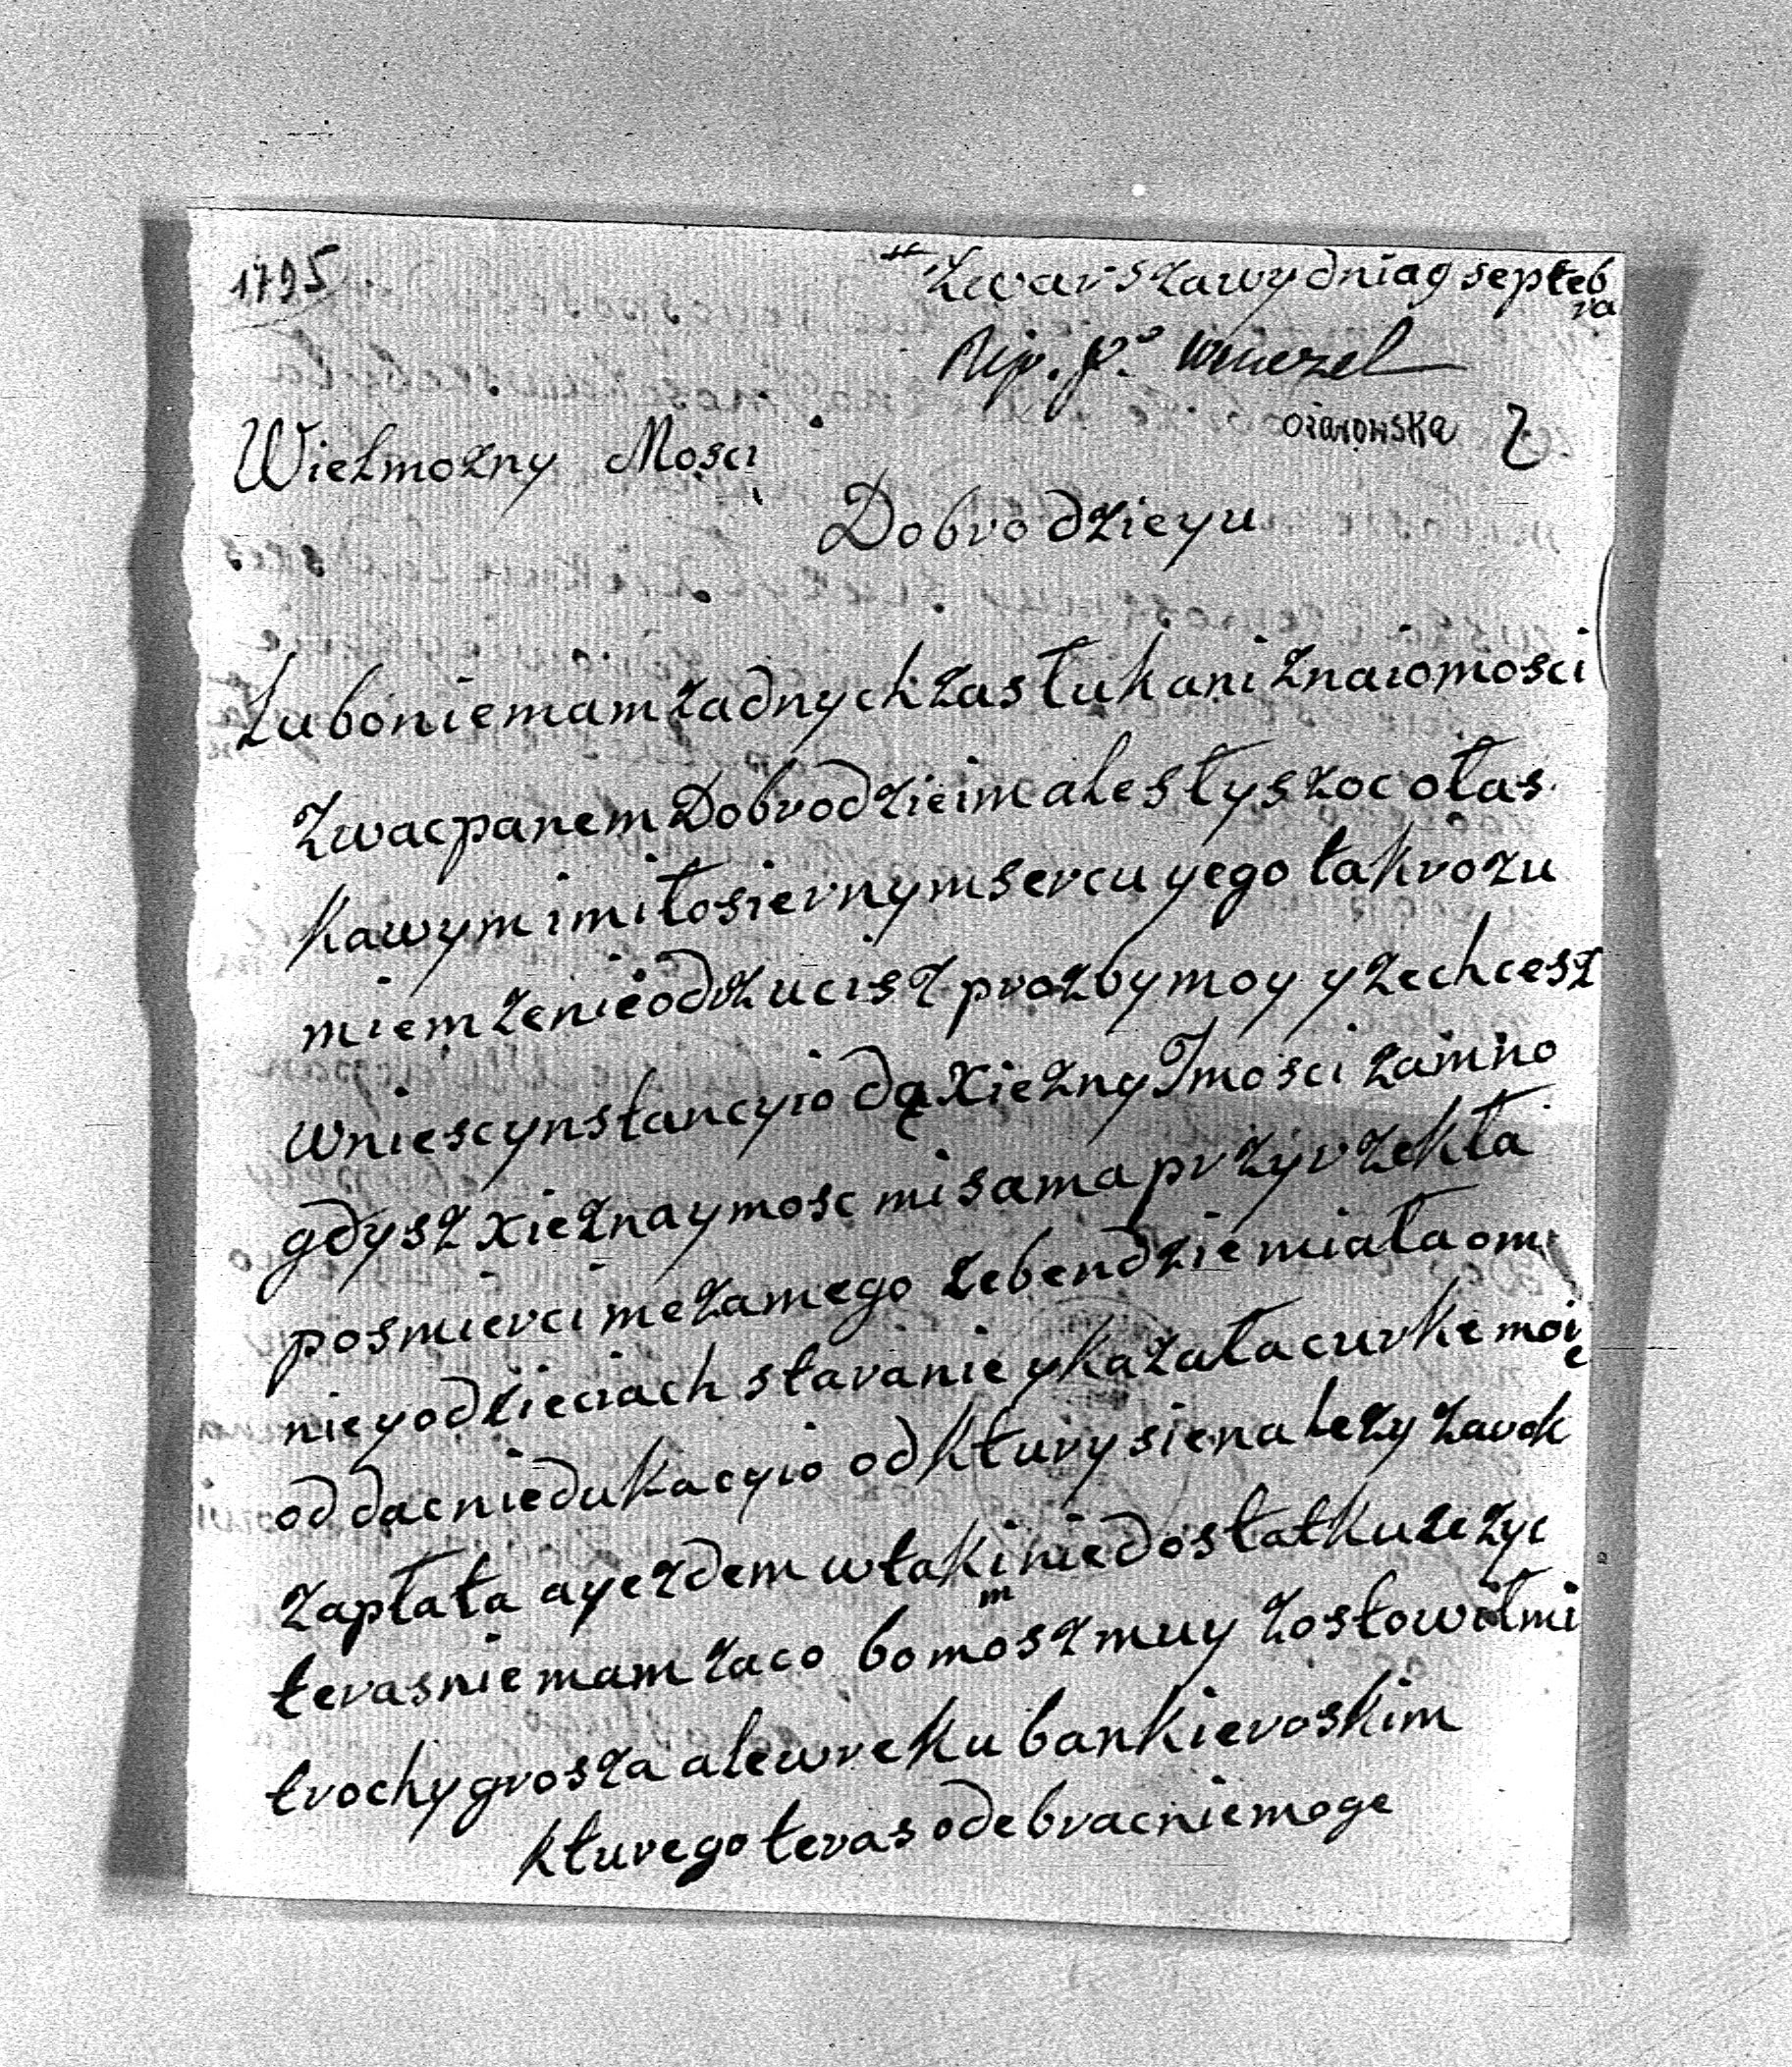 1795
zwarszawy dnia 9 septeb
ra
Rip. J.o
ożarowska
Wielmozny Mosci
Dobrodzieyu
Luboniemam zadnych zasłuk ani znaiomosci
zwacpanem Dobrodzieim ale słyszoc ołas
kawym i miłosiernym sercu yego tak rozu
miem ze nie odrzucisz prozby moy y zechcesz
wniesc ynstancyio dą Xiezny Jmosci zamno
gdysz xiezna ymosc mi sama przyrzekła
posmierci mezamego zebendzie miała omi
nie yodzieciach staranie ykazała curke moie
oddac niedukacyio odktury sie nalezy zarok
zapłata a yezdem wtakim niedostatku ze zyc
teras nie mam zaco bo mosz muy zostowił mi
trochy grosza ale wreku bankieroskim
kturego teras odebrac niemoge